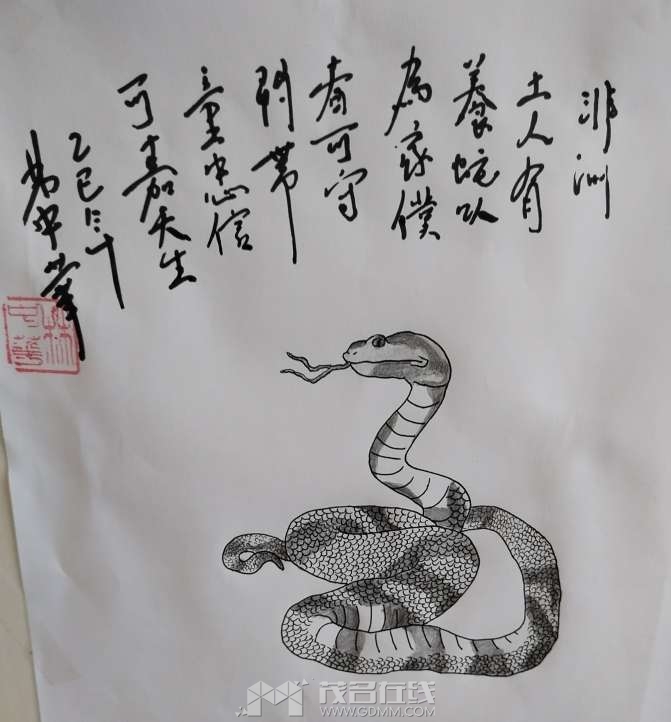 非洲
土人有
養蛇以
為家僕
者可守
門帶
童忠信
可嘉天生
乙巳
茂名在线
WWW.GDMM.COM